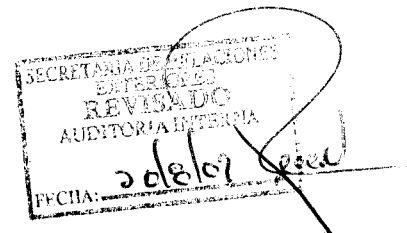 SECRETARIA DE RELACIONES
EXTERIORES
REVISADO
AUDITORIA INTERNA
FECHA: 20/8/09